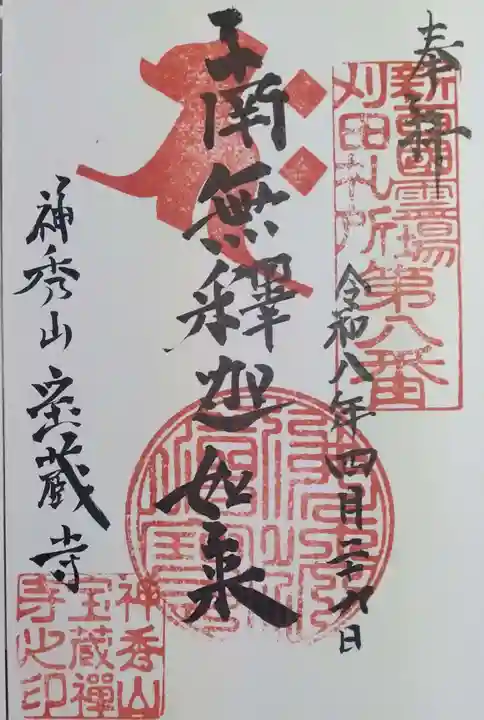 奉拝
刈田札所
第八番
令和八年四月二十九日
南無釋迦如来
神秀山宝蔵寺
神秀山
宝蔵禅
寺之印